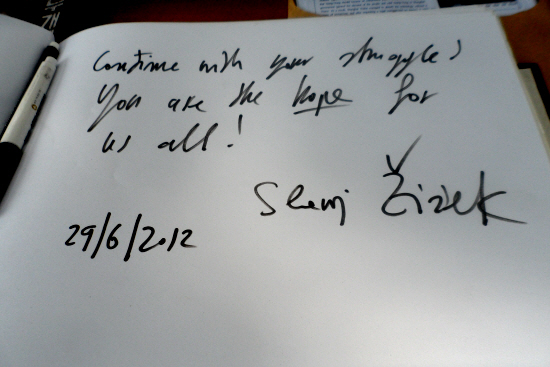 Continue with your struggle!
You are the hope for
us all!
Slavoj Žižek
29/6/2012